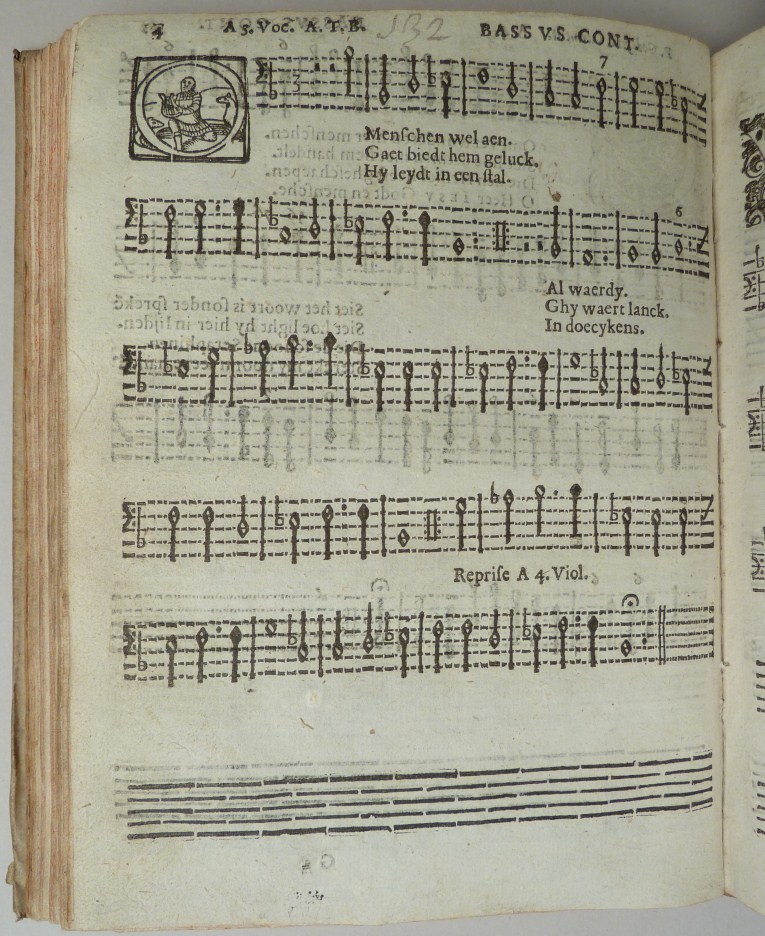 4 A 3. Voc. A. T. B. 132 BASSVS CONT.
7
O
Menſchen wel aen.
Gaet biedt hem geluck.
Hy leydt in een ſtal.
6
Al waerdy.
Ghy waert lanck.
In doecykens.
Repriſe A 4. Viol.